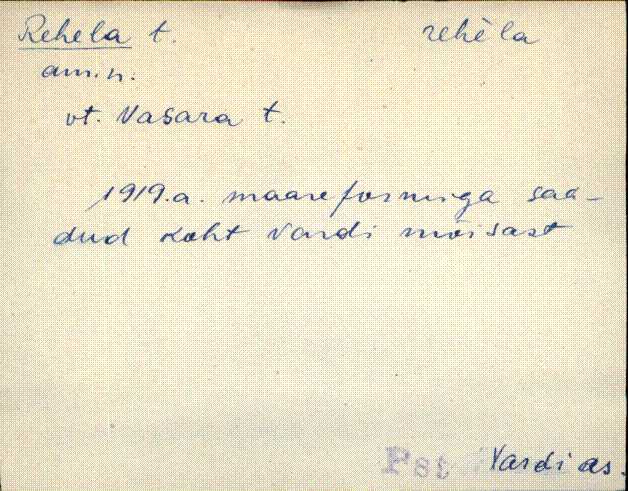 Rehela t. rehèla
am.n.
vt. Vasara t.
1919.a. maareformiga saa-
dud koht Vardi mõisast
Pst Vardi as.